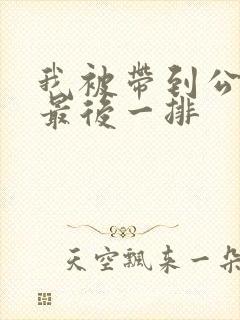 我被帶到公
最後一排
天空飄来一朵